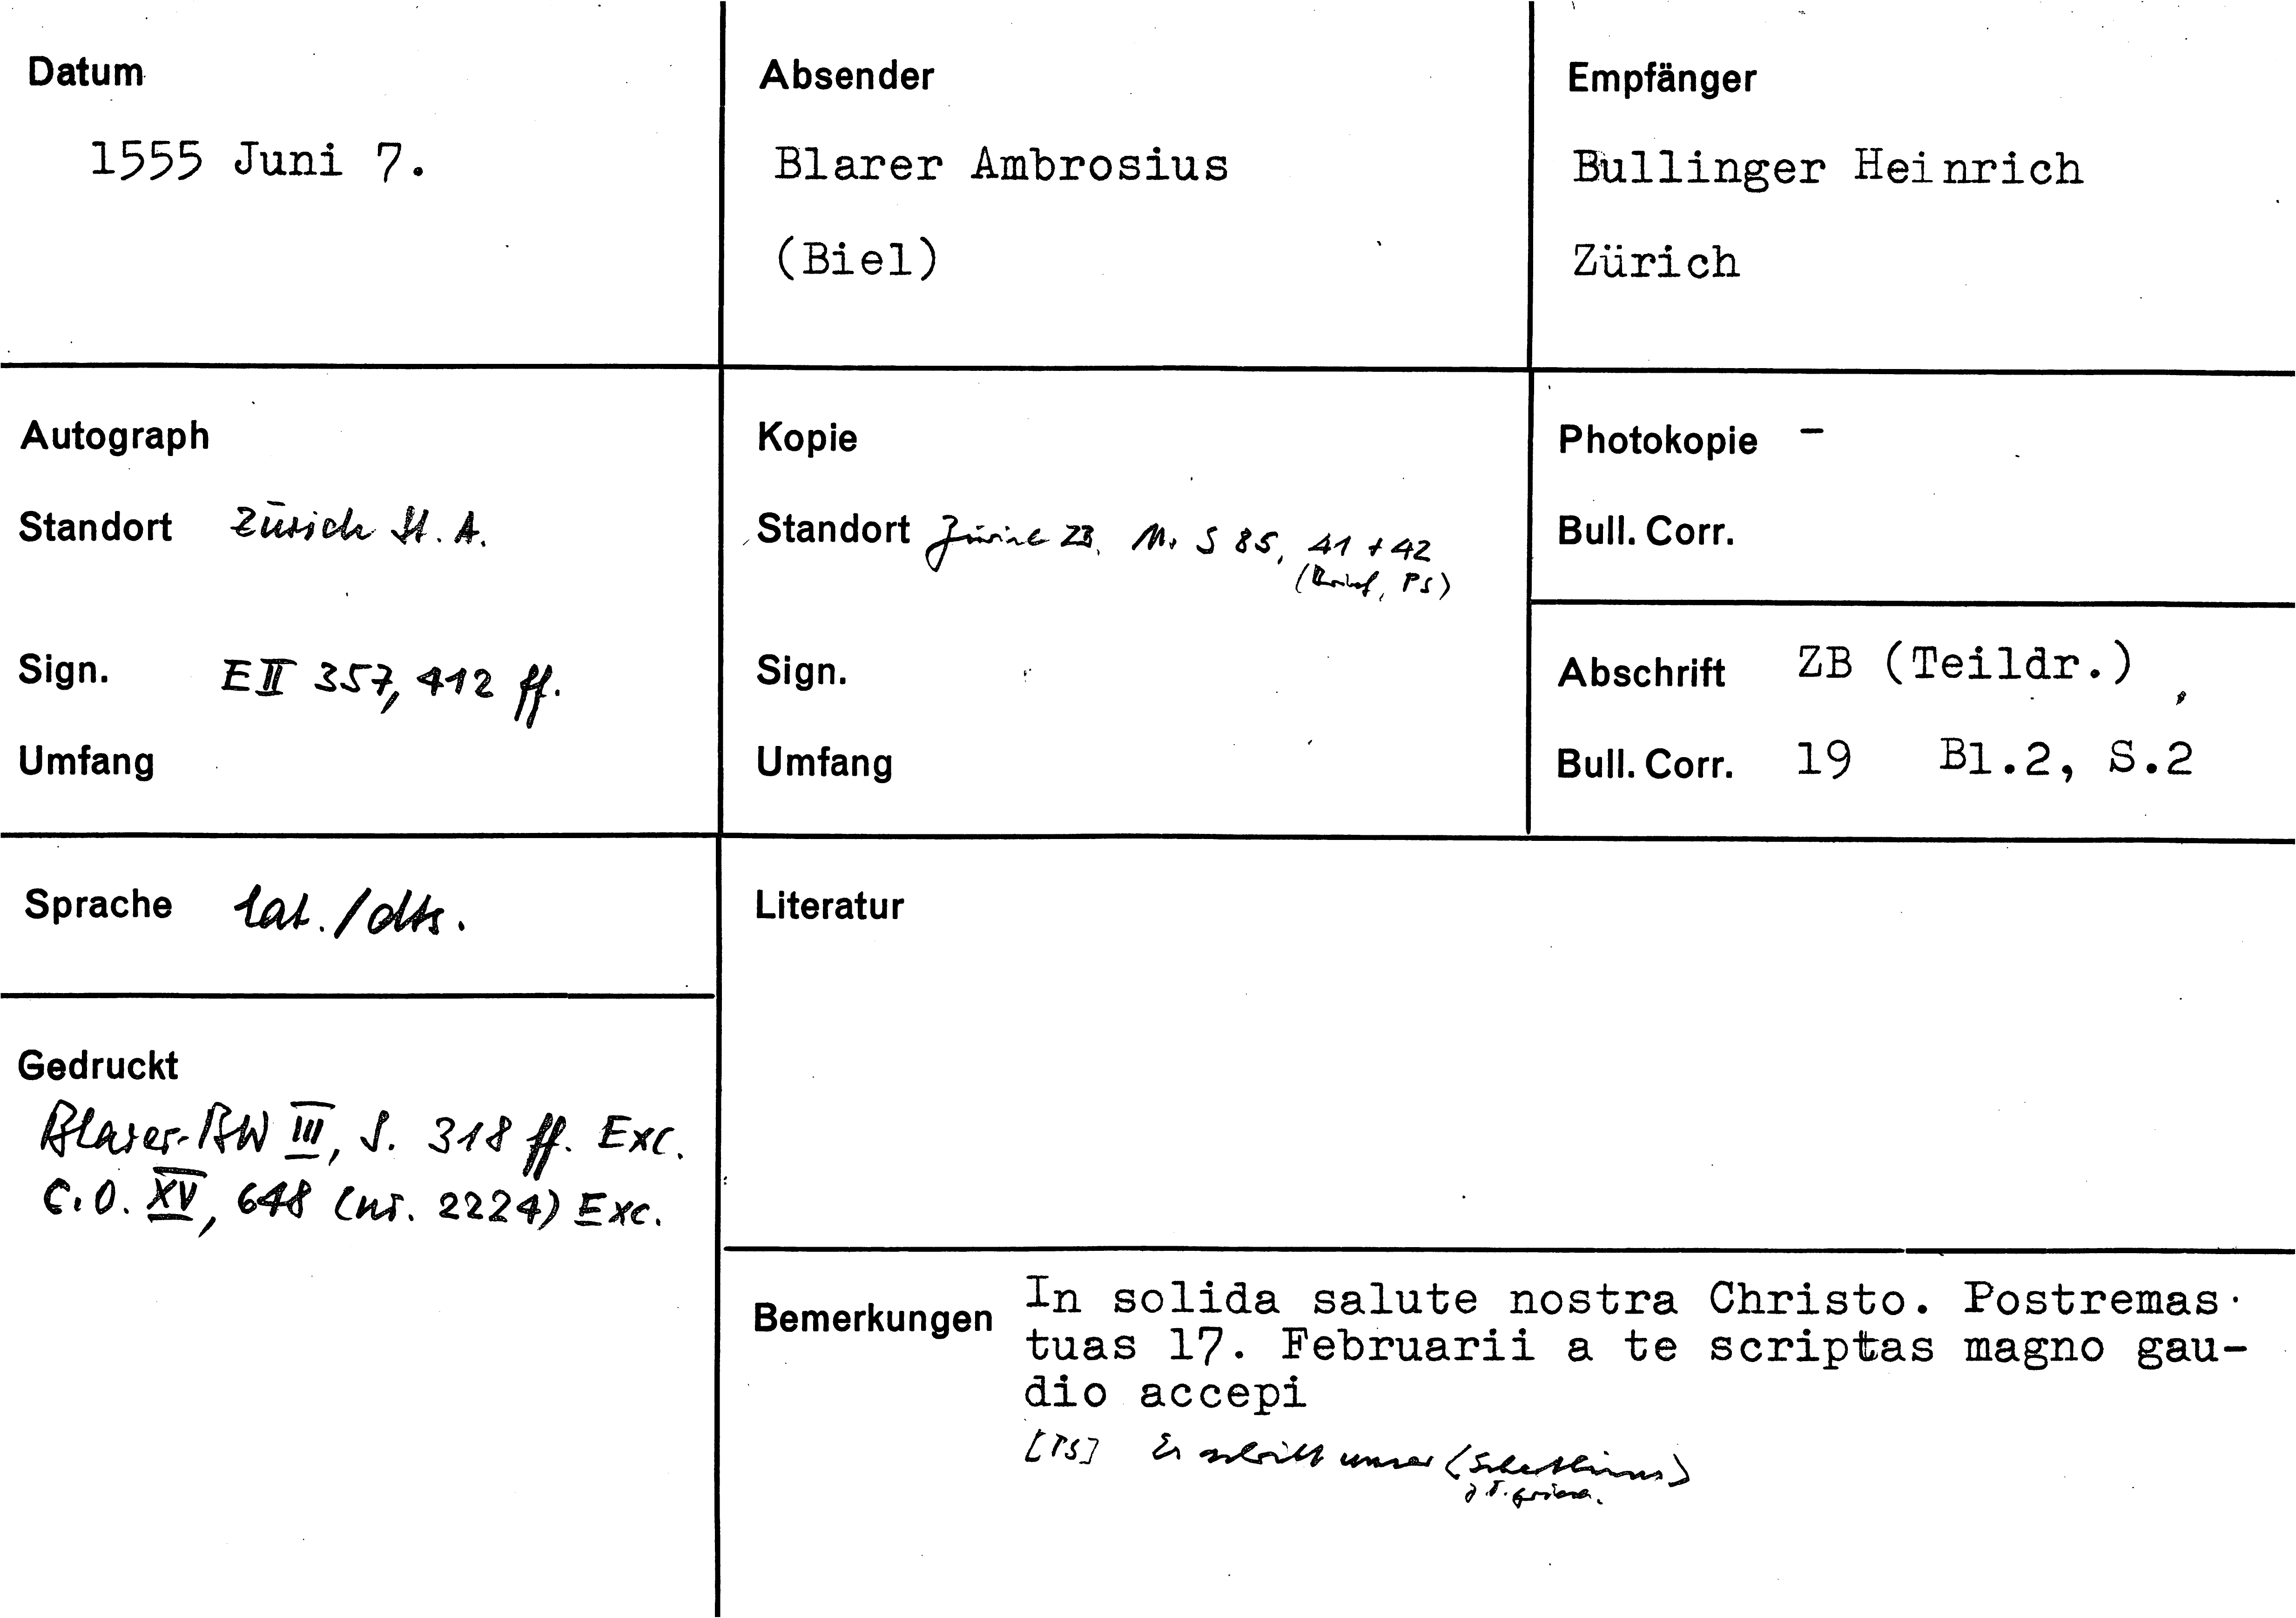 Datum
1555 Juni 7.
Absender
Blarer Ambrosius
(Biel)
Empfänger
Bullinger Heinrich
Zürich
Autograph
Standort Zürich St. A.
Sign. E II 357, 412 ff.
Umfang
Kopie
Standort Zürich ZB, Ms S 85, 41 + 42
(Brief, PS)
Sign.
Umfang
Photokopie -
Bull. Corr.
Abschrift ZB (Teildr.)
Bull. Corr. 19 Bl.2, S.2
Sprache lat./dts.
Gedruckt
Blarer-BW III, S. 318 ff. Exc.
C.O. XV, 648 (nr. 2224) Exc.
Literatur
Bemerkungen
In solida salute nostra Christo. Postremas
tuas 17. Februarii a te scriptas magno gau-
dio accepi
[PS] Er schribt unser